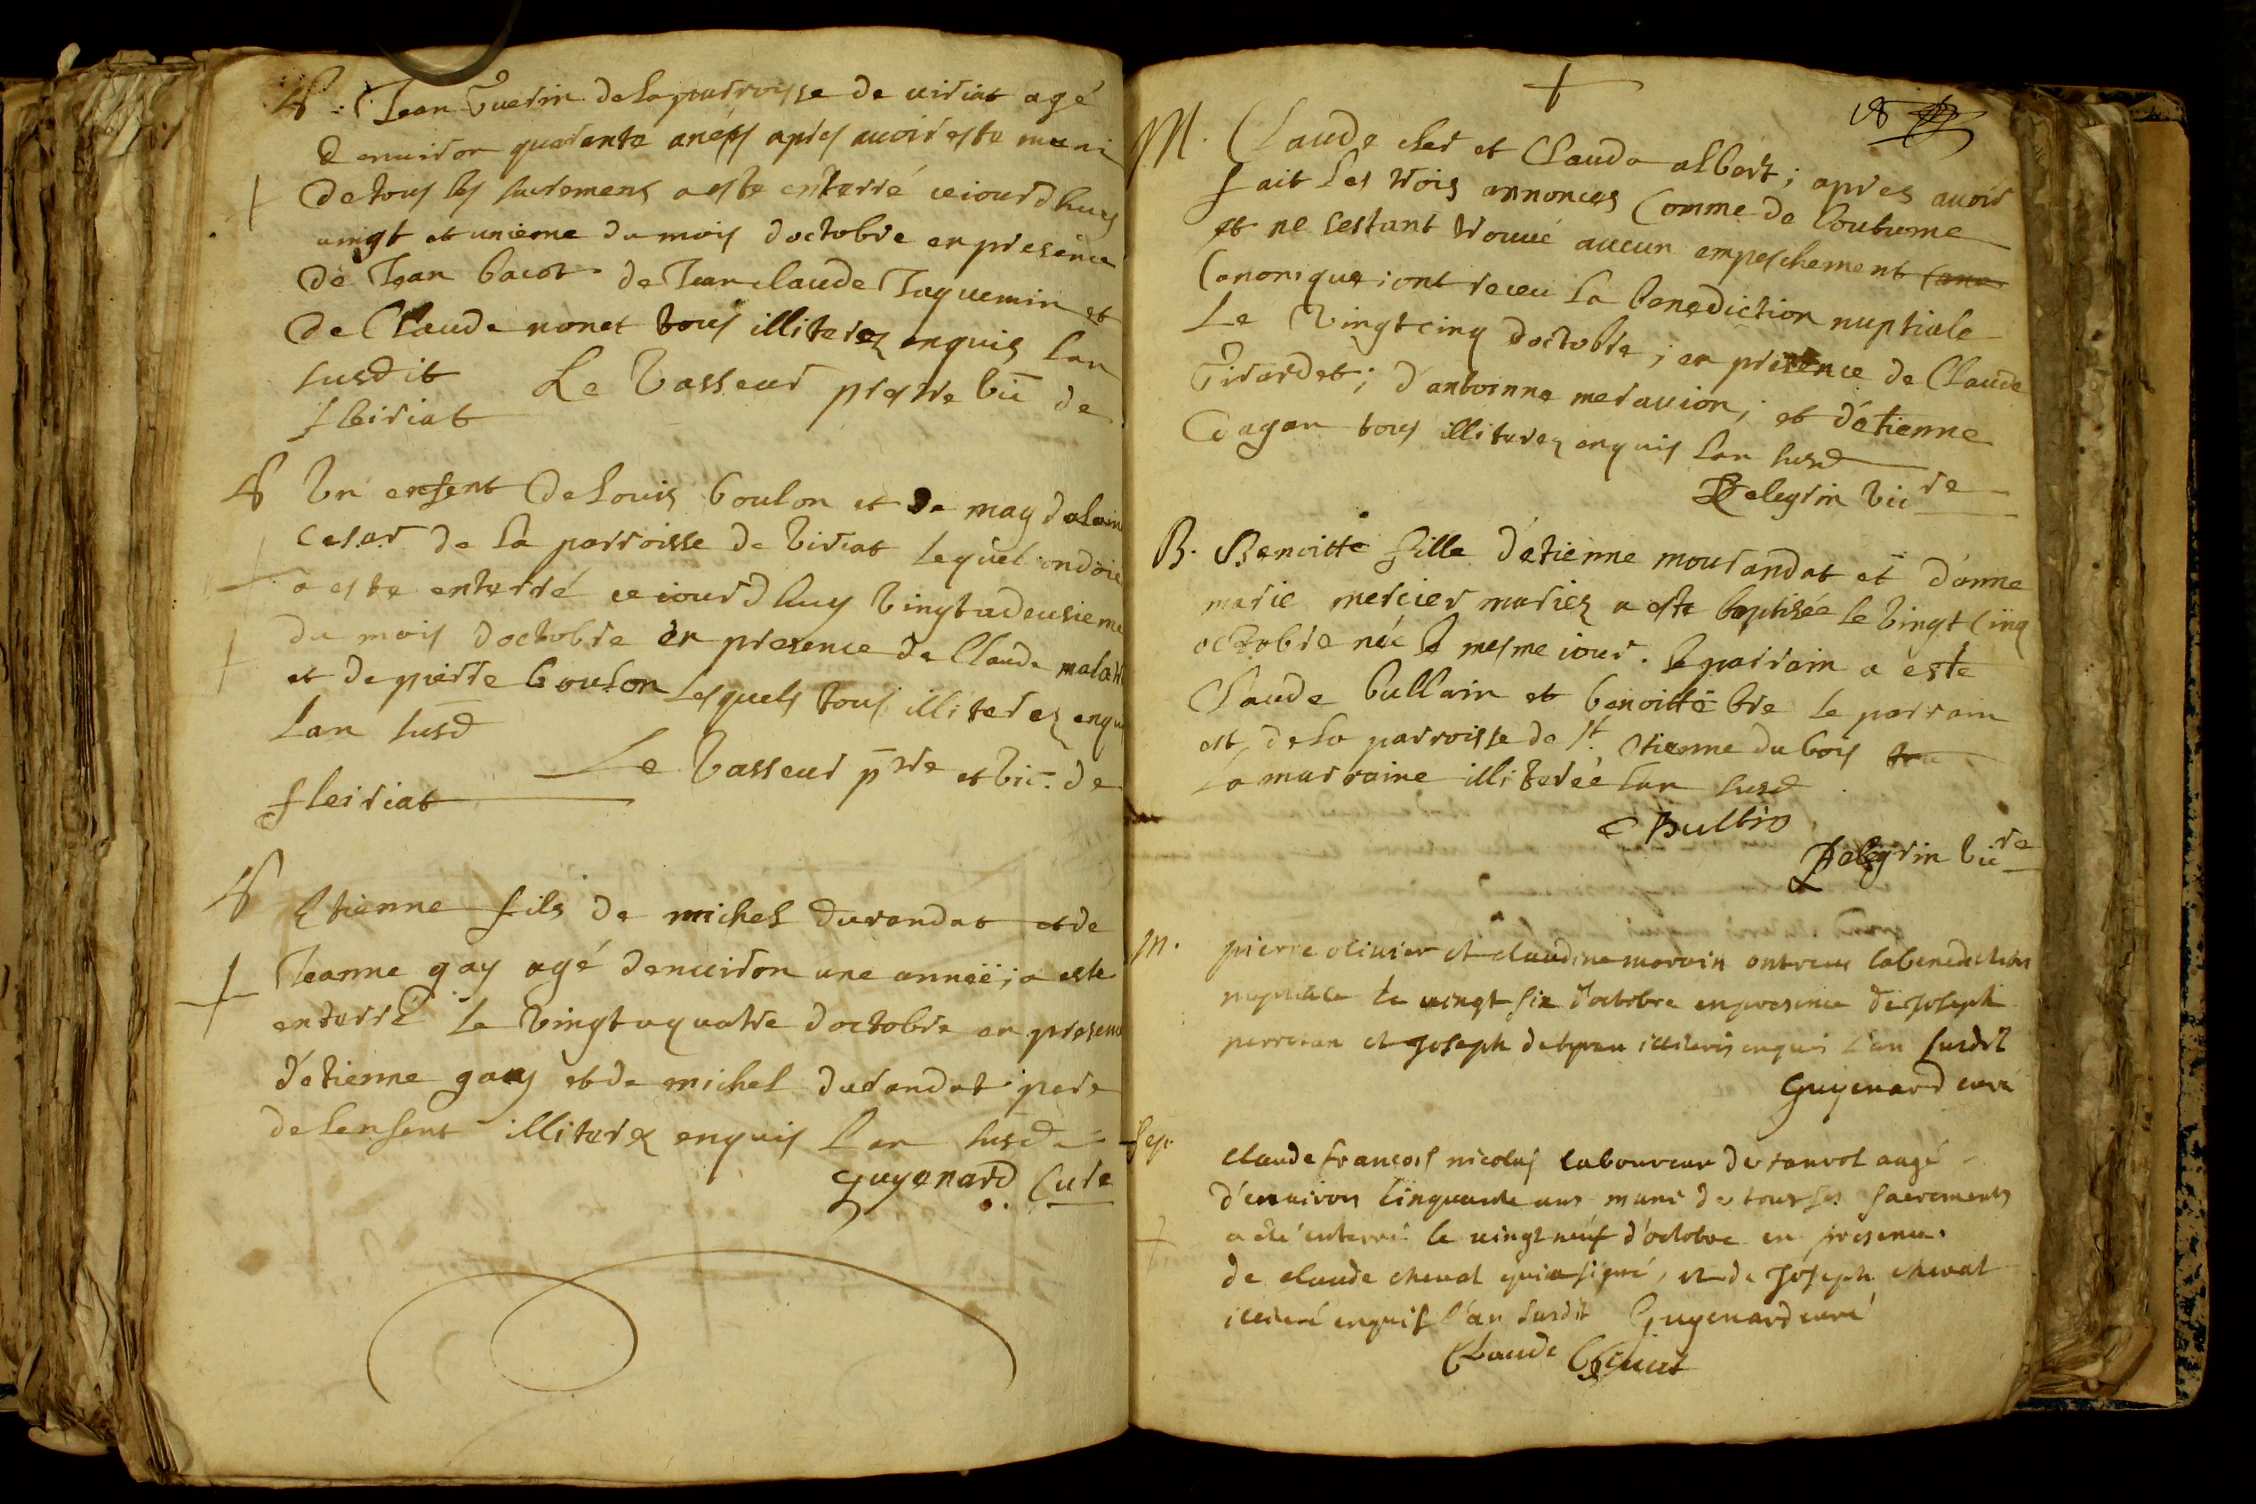 S. Jean Guerin de la parroisse de viriat agé
d environ quarente anéés apres avoir este muni
de tous les sacremens a este enterré ceiourdhuy
vingt et unieme du mois doctobre en presence
de Jean bacot de Jean claude Jaquemin et
de Claude nonet tous illiterez enquis lan
susdit Le Vasseur prestre vic de
fleiriat
S Un enfent de Louis boulon et de magdelaine
Cesar de la parroisse de Viriat lequel ondoié
a este enterré ceiourdhuy vingtadeusieme
du mois doctobre en presence de Claude
et de pierre boulon lesquels tous illiterez enquis
lan susd
Le Vasseur ptre et vic. de
fleiriat
S Etienne fils de michel durandat et de
Jeanne gay agé denviron une année; a este
enterré le vingtaquatre doctobre en presence
d'etienne gay et de michel durandat pere
de lenfent illiterez enquis l'an susd
Guyenard Curé
18
M. Claude cler et Clauda albert; apres avoir
fait les trois annonces Comme de Coutume
et ne sestant trouvé aucun empeschement Cano
Canonique; ont receu la benediction nuptiale
Le Vingtcinq doctobre; en presence de Claude
Girardet; d'antoinne meravion; et d'étienne
tous illiterez enquis lan susd
Pelegrin vic re
B. Benoitte fille d'etienne mourandat et d'anne
marie mercier mariez a este baptisée le vingt Cinq
octobre née le mesme iour. le parrain a este
Claude bullain et benoitte bre le parrain
est de la parroisse de st. etienne du bois
La marraine illiterée lan susd
C Bullin
Pelegrin vic re
M. pierre olivier et claudine morain ont receu la benediction
nuptiale le vingt six d'octobre en presence de Joseph
perretan et Joseph illiteres enquis l'an susdit
Guyenard curé
Sep.
claude françois nicolas laboureur de augé
d'environ cinquante ans muni de tous ses sacrements
a été enterré le vingt neuf d'octobre en presence
de claude chenat qui a signé, et de Joseph chenat
illiteré enquis l'an susdit Guyenard curé
Claude Chenat